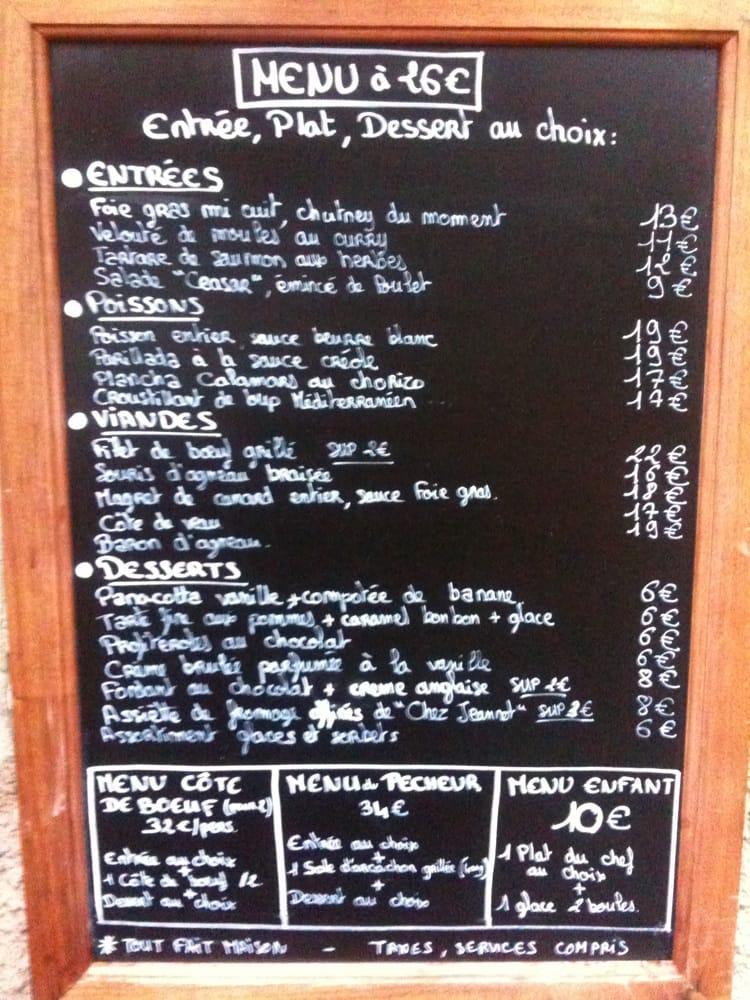 MENU à 26€
Entrée, Plat, Dessert au choix:
• ENTRÉES
Foie gras mi cuit, chutney du moment 13€
Velouté de moules au curry 11€
Tartare de saumon aux herbes 12€
Salade "Ceasar", émincé de Poulet 9€
• POISSONS
Poisson entier sauce beurre blanc 19€
Parillada à la sauce créole 19€
Plancha Calamars au chorizo 17€
Croustillant de loup Méditerranéen 17€
• VIANDES
Filet de bœuf grillé SUP 2€ 22€
Souris d'agneau braisée
Magret de canard entier, sauce Foie gras.
Côte de veau
Baron d'agneau.
• DESSERTS
Panacotta vanille + compotée de banane 6€
Tarte fine aux pommes + caramel bonbon + glace 6€
Profiteroles au chocolat 6€
Crème brulée parfumée à la vanille 6€
Fondant au chocolat + creme anglaise SUP 8€
Assiette de fromage affinés de "Chez Jeannot" SUP 8€
Assortiment glaces et sorbets 6€
MENU CÔTE
DE BOEUF (min 2)
32€/pers
Entrée au choix
+
1 Côte de bœuf
+
Dessert au choix
MENU du PECHEUR
34€
Entrée au choix
+
1 Sole d'arcachon grillée
+
Dessert au choix
MENU ENFANT
10€
1 Plat du chef
au choix
+
1 glace 2 boules.
* TOUT FAIT MAISON - TAXES, SERVICES COMPRIS